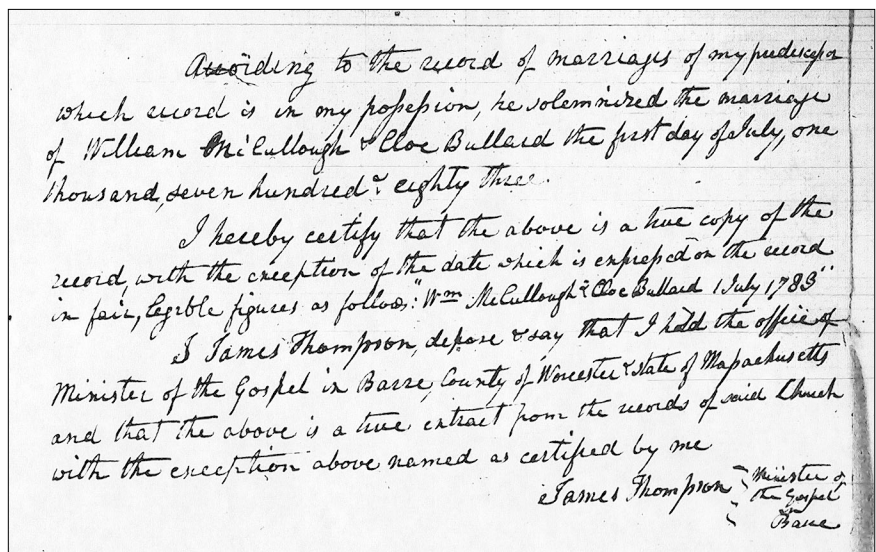 According to the record of marriages of my predecessor
which record is in my possession, he solemnized the marriage
of William McCullough & Cloe Bullard the first day of July, one
thousand, seven hundred & eighty three.
I hereby certify that the above is a true copy of the
record, with the exception of the date which is expressed on the record
in fair, legible figures as follows, "Wm McCullough & Cloe Bullard 1 July 1783"
I James Thompson, depose & say that I hold the office of
Minister of the Gospel in Barre, County of Worcester & state of Massachusetts
and that the above is a true extract from the records of said Church
with the exception above named as certified by me
James Thompson
Minister of
the Gospel
Barre